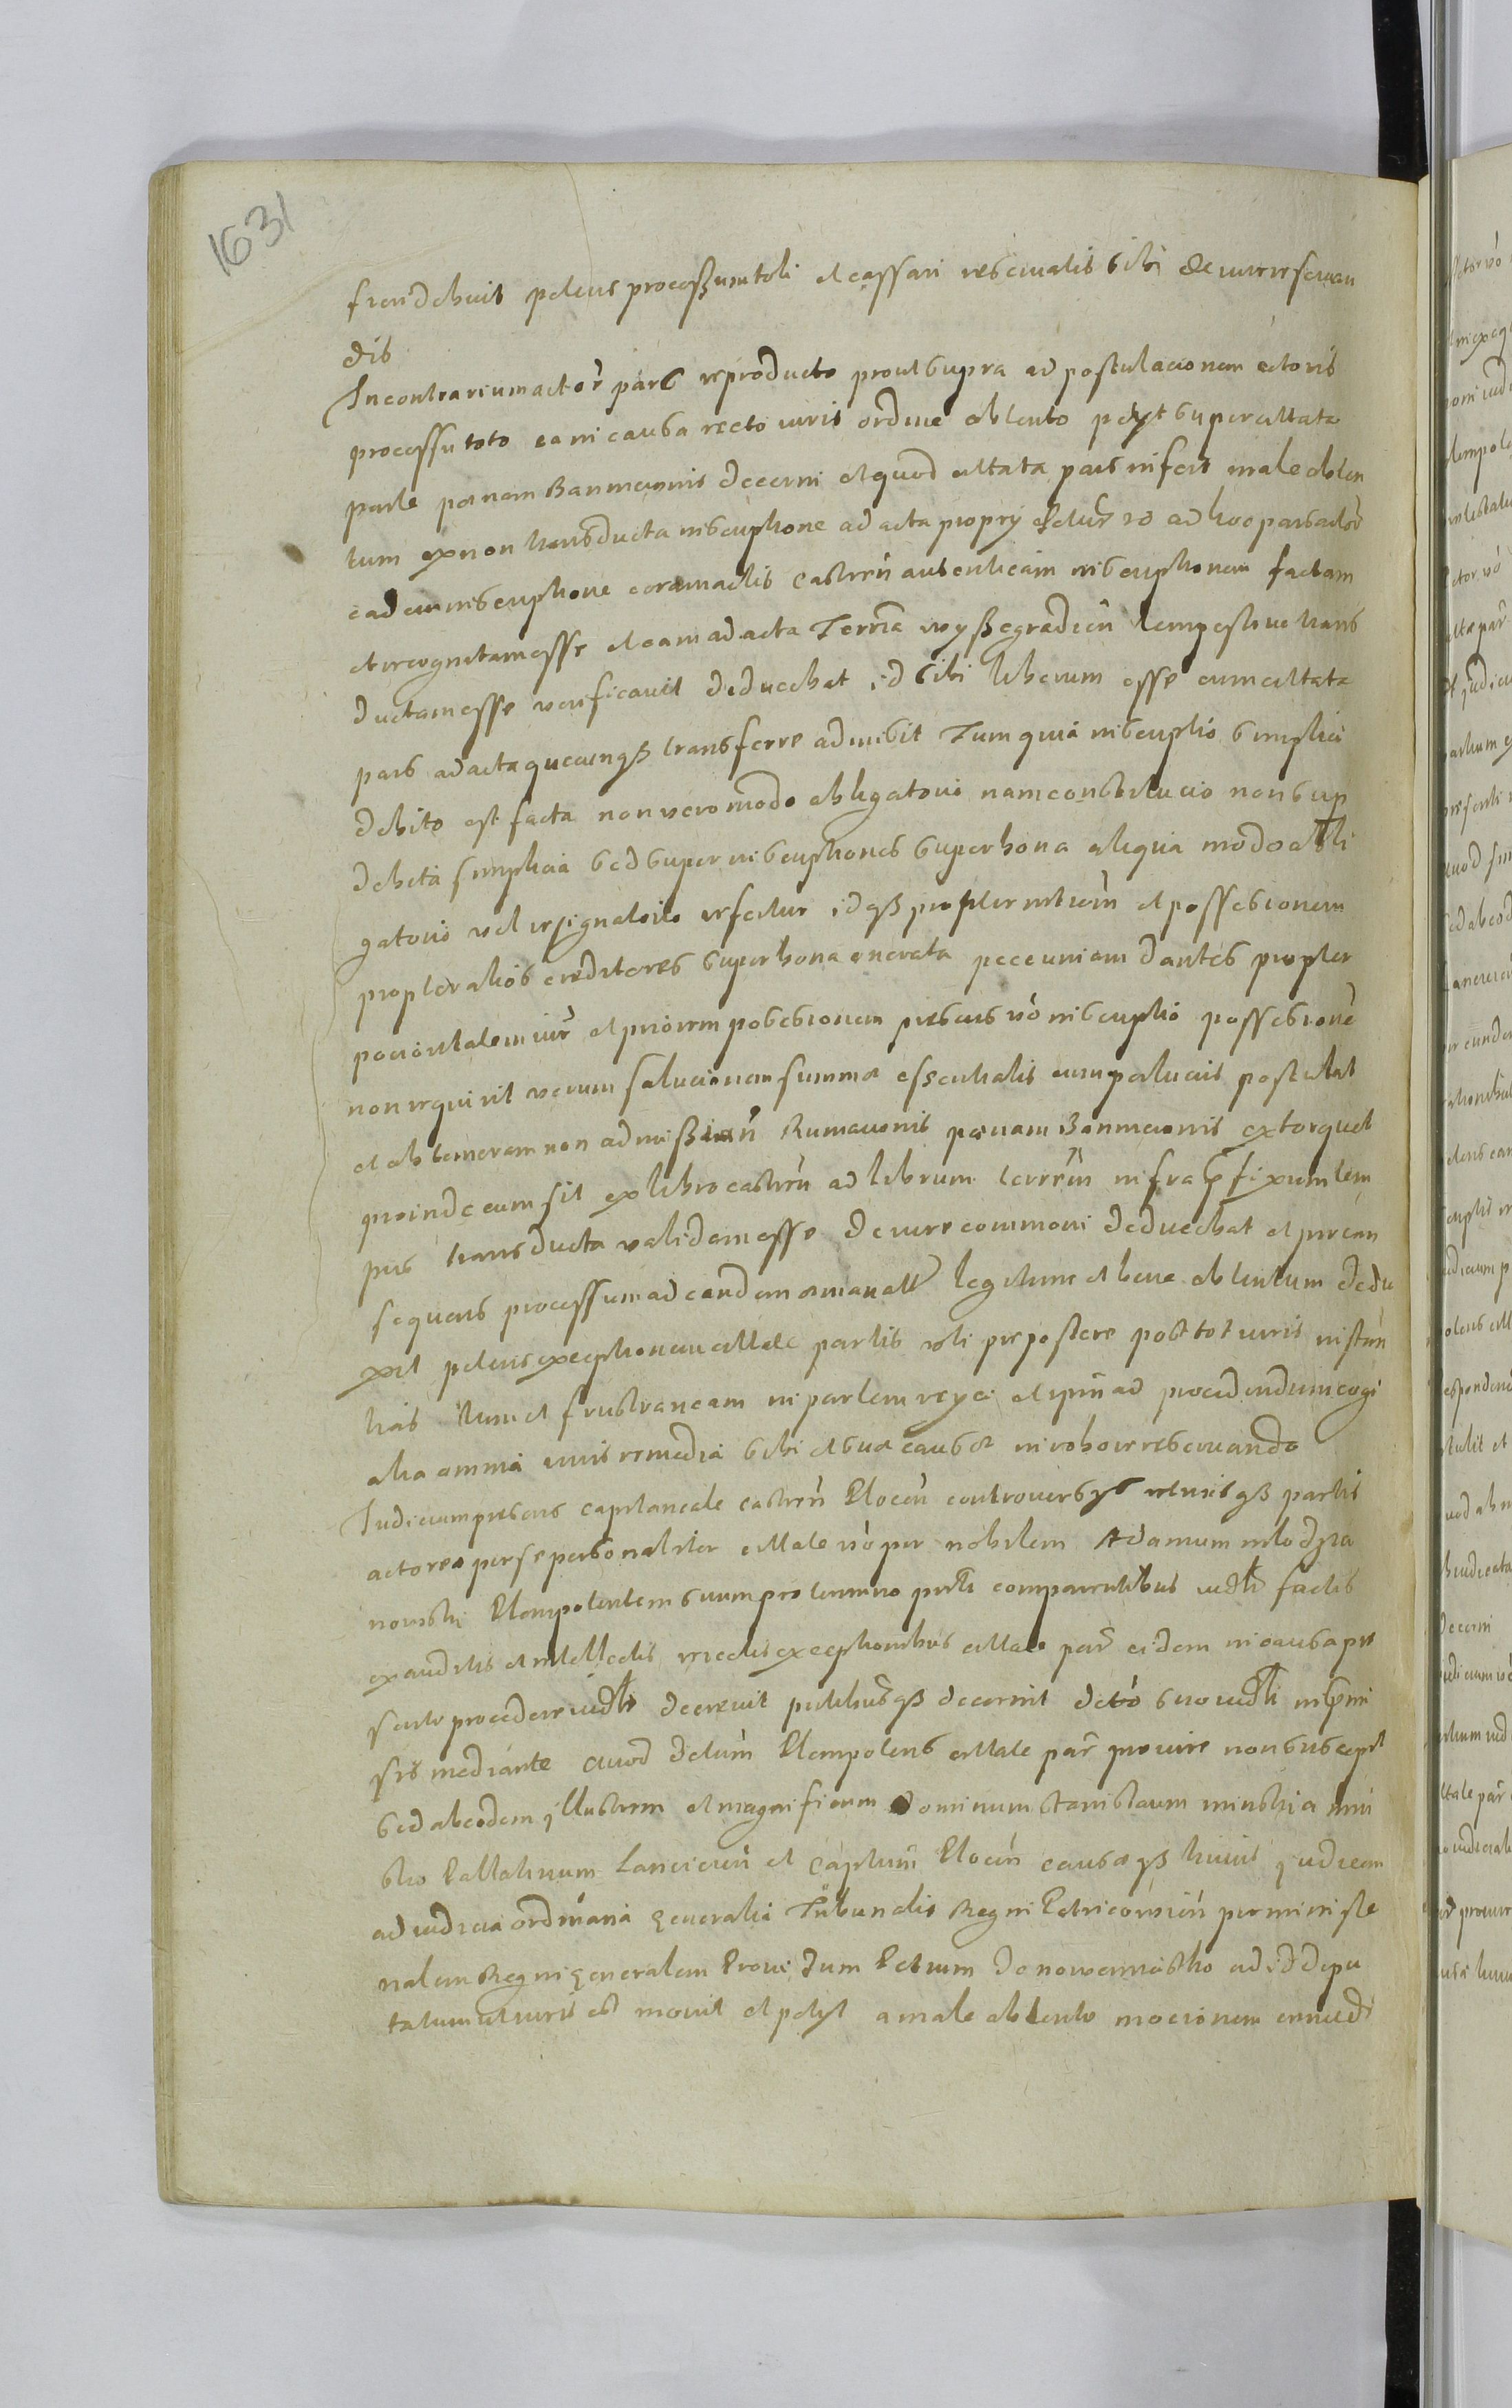 1631
fieri debuit petens processum tolli et cassari reservatis sibi de iure reservan
dis
In contrarium actor pars reproducto prout supra ad postulacionem actoris
processu toto ea in causa recto iuris ordine obtento petyt super citata
parte pœnam Bannicionis decerni et quod citata pars infert male obten
tum ex non transducta inscriptione ad acta proprii ad hoc pars actor
eadem inscriptione coram actis castren autenticam inscriptionem factam
et recognitam esse et eam ad acta Terria wyssegradien tempestive trans
ductam esse verificavit deducebat id sibi liberum esse cum citata
pars ad acta quecunqß transferre admisit Tum quia inscriptio simplici
debito est facta non vero modo obligatorio nam constitucio non sup
debita simplicia sed super inscriptiones super bona aliqua modo obli
gatorio vel resignatorio refertur idqß propter et possessionem
propter alios creditores super bona onerata pecuniam dantes propter
potioritatem iur et priorem possessionem presens vo inscriptio possessione
non requirit verum solucionem summæ essencialis cum pœlucris postulat
et ob temeram non admissian Rumacionis pœnam Bannicionis extorquet
proinde cum sit ex libro castren ad librum terren infra pfixum tem
pus transducta validam esse de iure communi deducebat et per con
sequens processum ad eandem emanatt legitime et bene obtentum dedu
xit petens exceptionem citatæ partis uti prepostere post tot iuris instan
tias tum et frustraneam in partem reyci et ipm ad procedendum cogi
alia omnia iuris remedia sibi et suæ causæ in robore reservando
Iudicium presens capitaneale castren Plocen controversys utriusqß partis
actoreæ per se personaliter citatæ vo per nobilem Adamum mlodzia
nowski Plenipotentem suum pro termino pnti comparentibus iudli factis
exauditis et intellectis reiectis exceptionibus citatæ par eidem in causa pre
senti procedere iudlr decrevit partibusqß decernit dcto suo iudli inpmi
sis mediante Quod dctum Plenipotens citatæ par pro iure non suscepit
sed ab eodem illustrem et magnificum Dominum stanislaum minski a min
sko Pallatinum Lancicien et Captum Plocen causæqß huius iudicem
ad iudicia ordinaria generalia Tribunalis Regni Petricovien per ministe
rialem Regni generalem Providum Petrum de nowemiastho ad id depu
tatum ut iuris est movit et petyt a male obtento mocionem